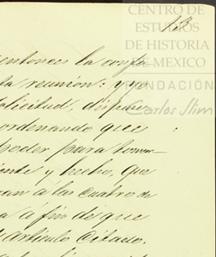 CENTRO DE
ESTUDIOS
DE HISTORIA
DE MEXICO
FUNDACIÓN
Carlos Slim
13
entonces la
la reunion; y yo
solicitud, dispu
ordenando que
poder para
y hecho, que
an a las cuatro de
a fin de que
articulo citado.